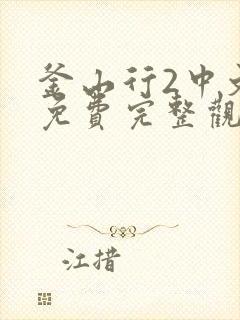 釜山行2中文
免費完整觀
江措